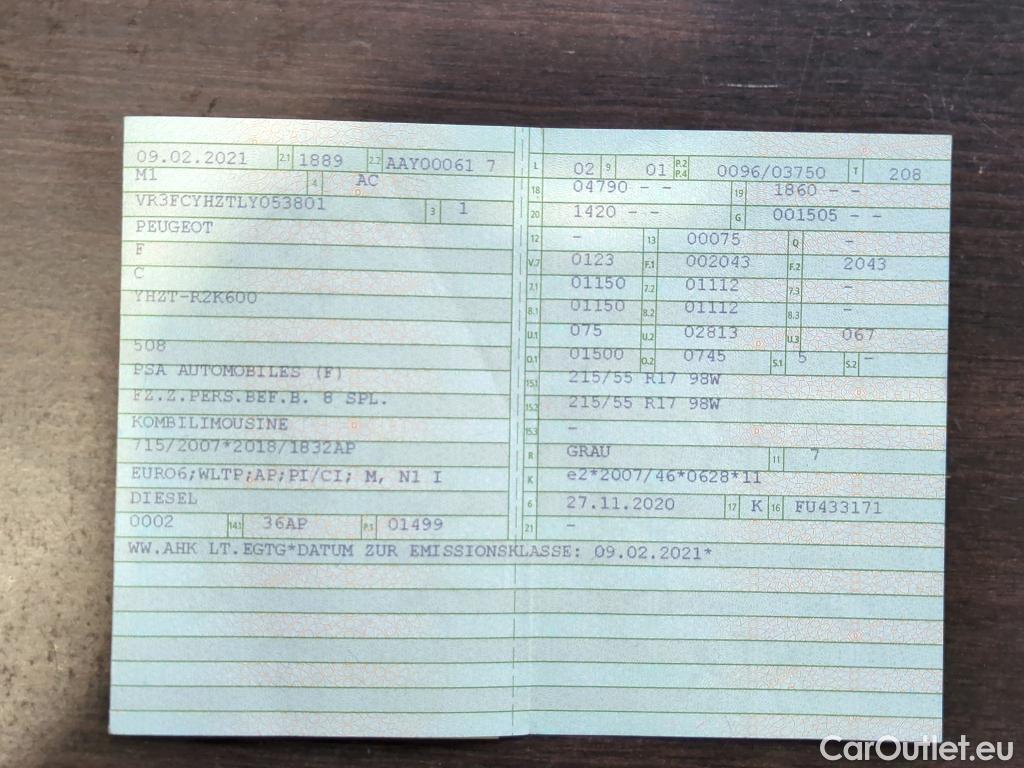 09.02.2021 2.1 1889 2.2 AAY00061 7
M1 4 AC
VR3FCYHZTLY053801 3 1
PEUGEOT
F
C
YHZT-R2K600
508
PSA AUTOMOBILES (F)
FZ.Z.PERS.BEF.B. 8 SPL.
KOMBILIMOUSINE
715/2007*2018/1832AP
EURO6;WLTP;AP;PI/CI; M, N1 I
DIESEL
0002 14.1 36AP P.1 01499
L 02 9 01 P.2 P.4 0096/03750 T 208
18 04790 - - 19 1860 - -
20 1420 - - G 001505 - -
12 - 13 00075 Q -
V.7 0123 F.1 002043 F.2 2043
7.1 01150 7.2 01112 7.3 -
8.1 01150 8.2 01112 8.3 -
U.1 075 U.2 02813 U.3 067
O.1 01500 O.2 0745 S.1 5 S.2 -
15.1 215/55 R17 98W
15.2 215/55 R17 98W
15.3 -
R GRAU 11 7
K e2*2007/46*0628*11
6 27.11.2020 17 K 16 FU433171
21 -
WW.AHK LT.EGTG*DATUM ZUR EMISSIONSKLASSE: 09.02.2021*
CarOutlet.eu